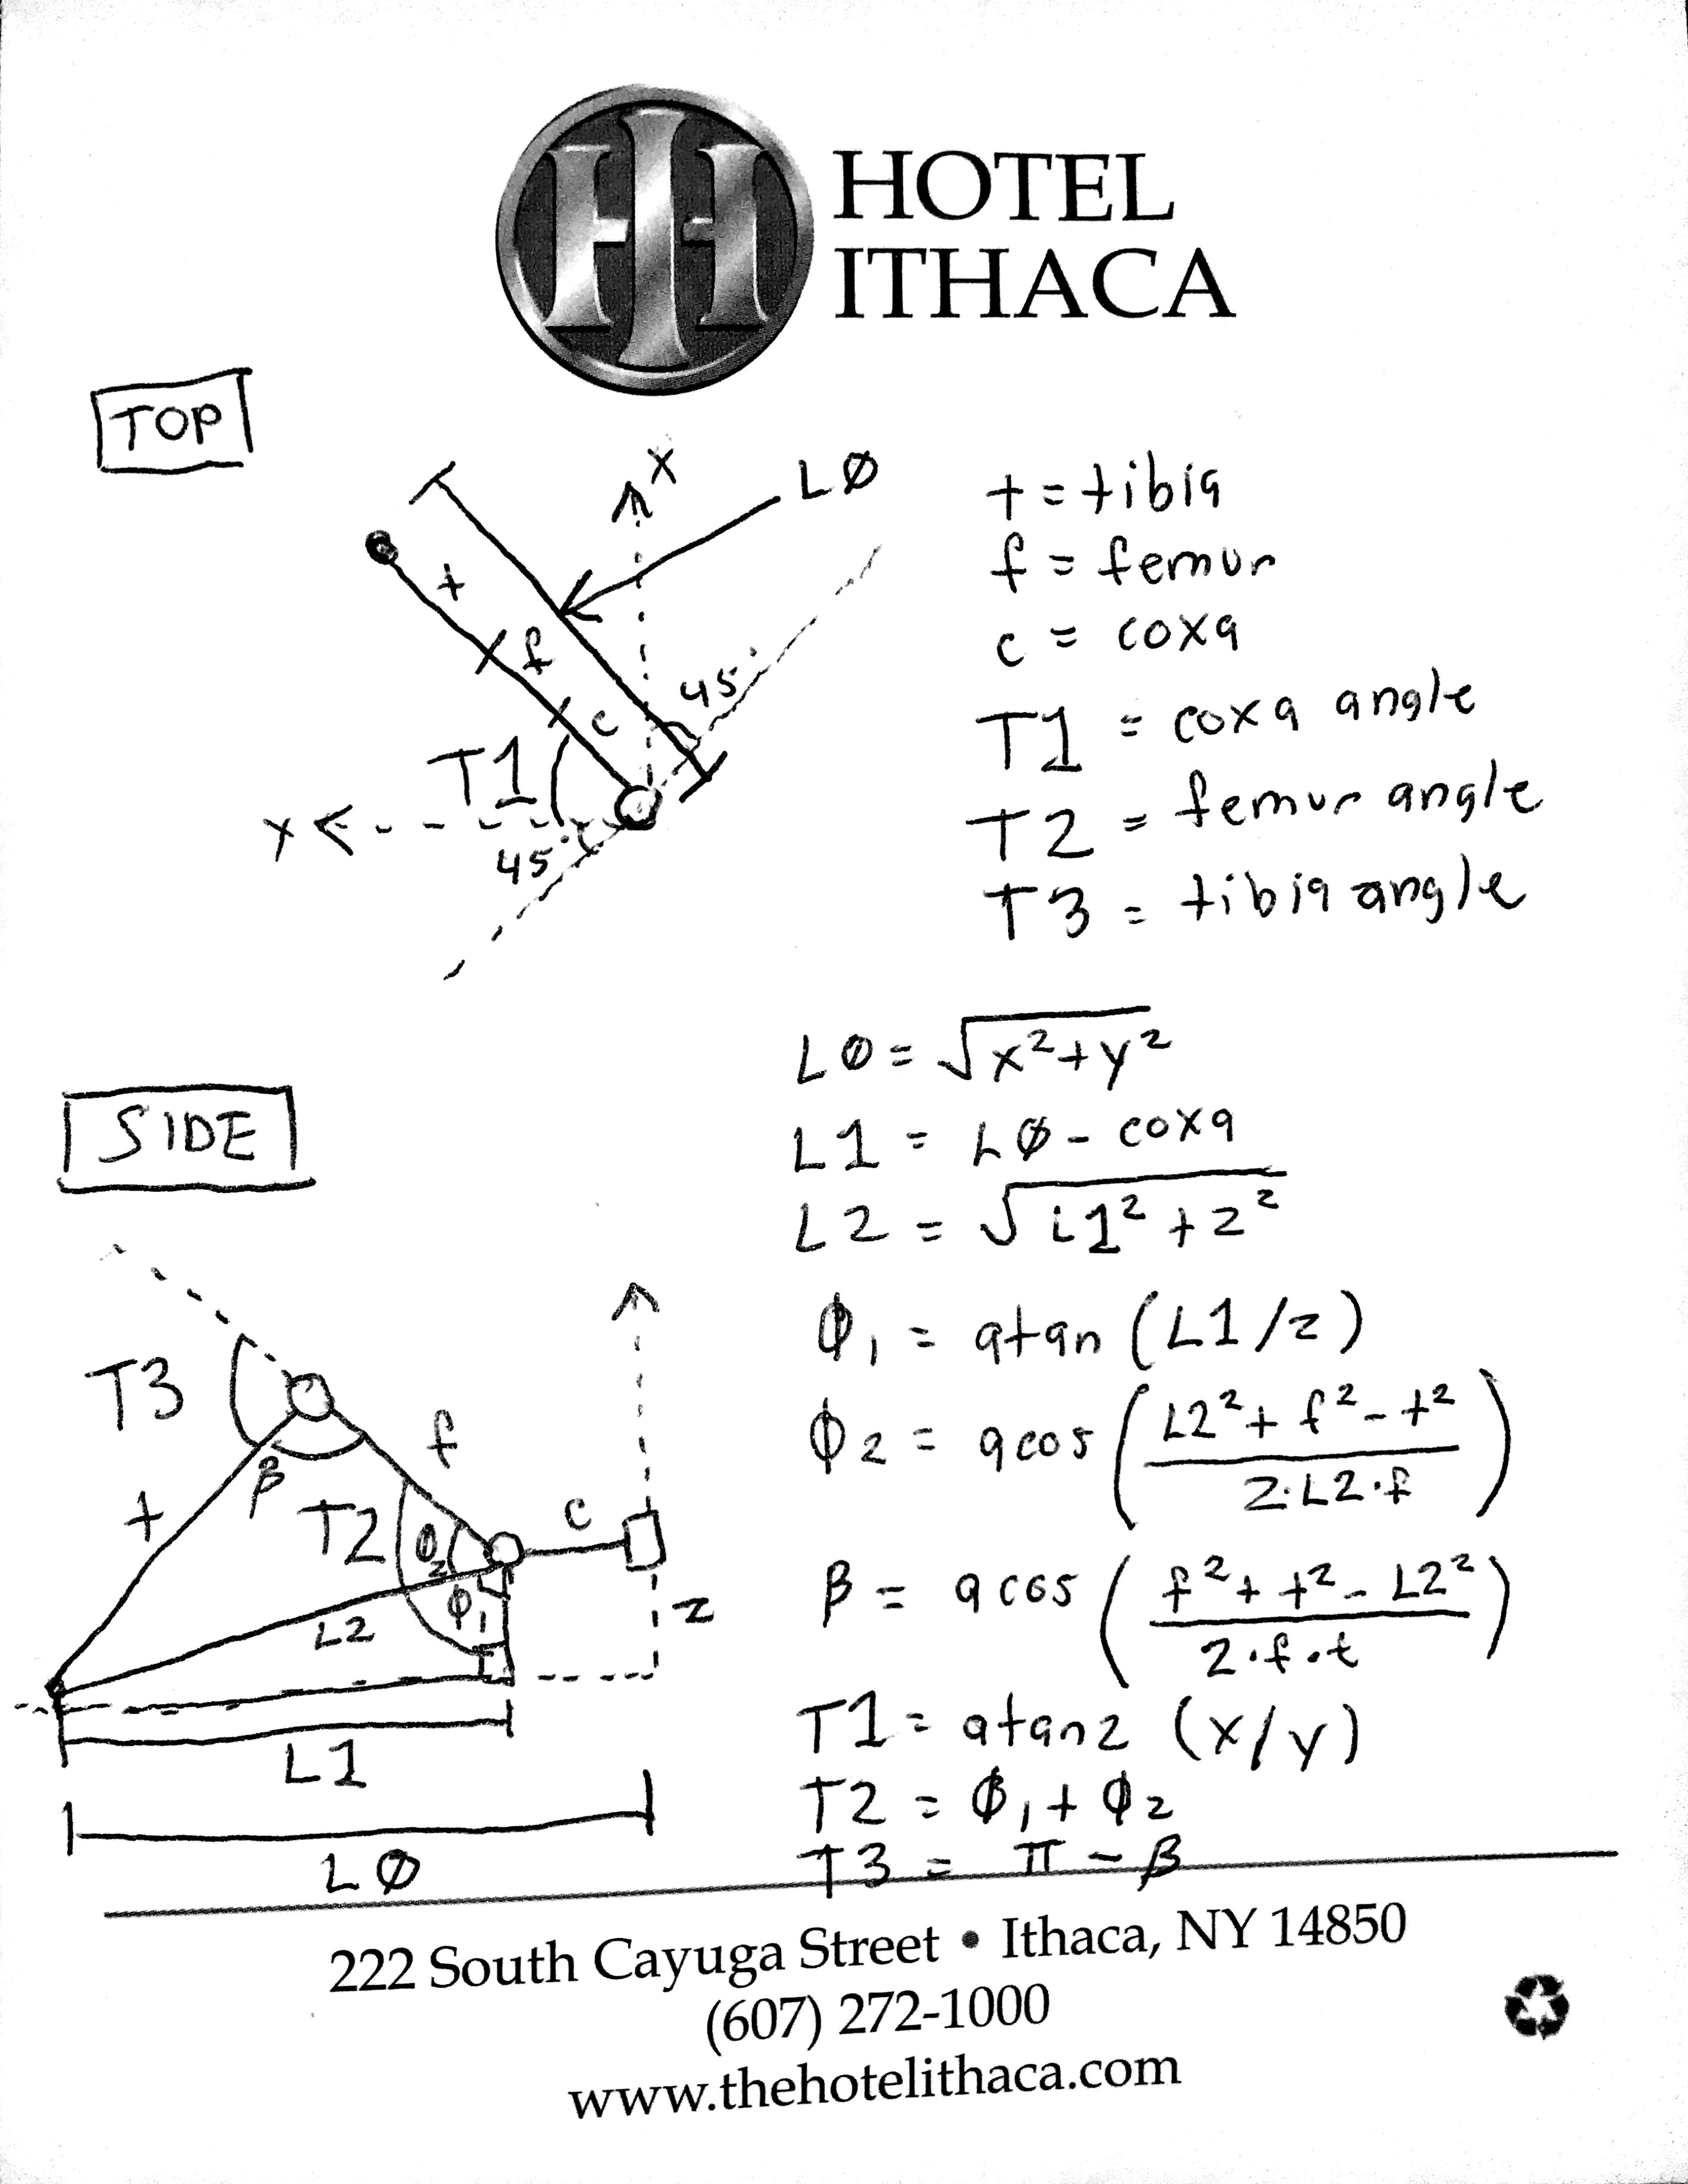 HOTEL
ITHACA
TOP
X
LØ
t
f
c
45°
T1
Y
45°
t = tibia
f = femur
c = coxa
T1 = coxa angle
T2 = femur angle
T3 = tibia angle
SIDE
T3
β
f
t
T2
Φ2
Φ1
c
z
L2
L1
LØ
LØ = √x²+y²
L1 = LØ - coxa
L2 = √L1²+z²
Φ1 = atan (L1/z)
Φ2 = acos (L2²+f²-t² / 2·L2·f)
β = acos (f²+t²-L2² / 2·f·t)
T1 = atan2 (x/y)
T2 = Φ1+Φ2
T3 = π-β
222 South Cayuga Street • Ithaca, NY 14850
(607) 272-1000
www.thehotelithaca.com